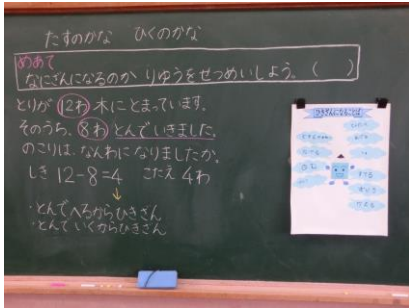 たすのかな ひくのかな
めあて
なにざんになるのか りゆうをせつめいしよう。( )
とりが 12わ 木にとまっています。
そのうち、8わ とんでいきました。
のこりは、なんわになりましたか。
しき 12-8=4 こたえ 4わ
・とんでへるからひきざん
・とんでいくからひきざん